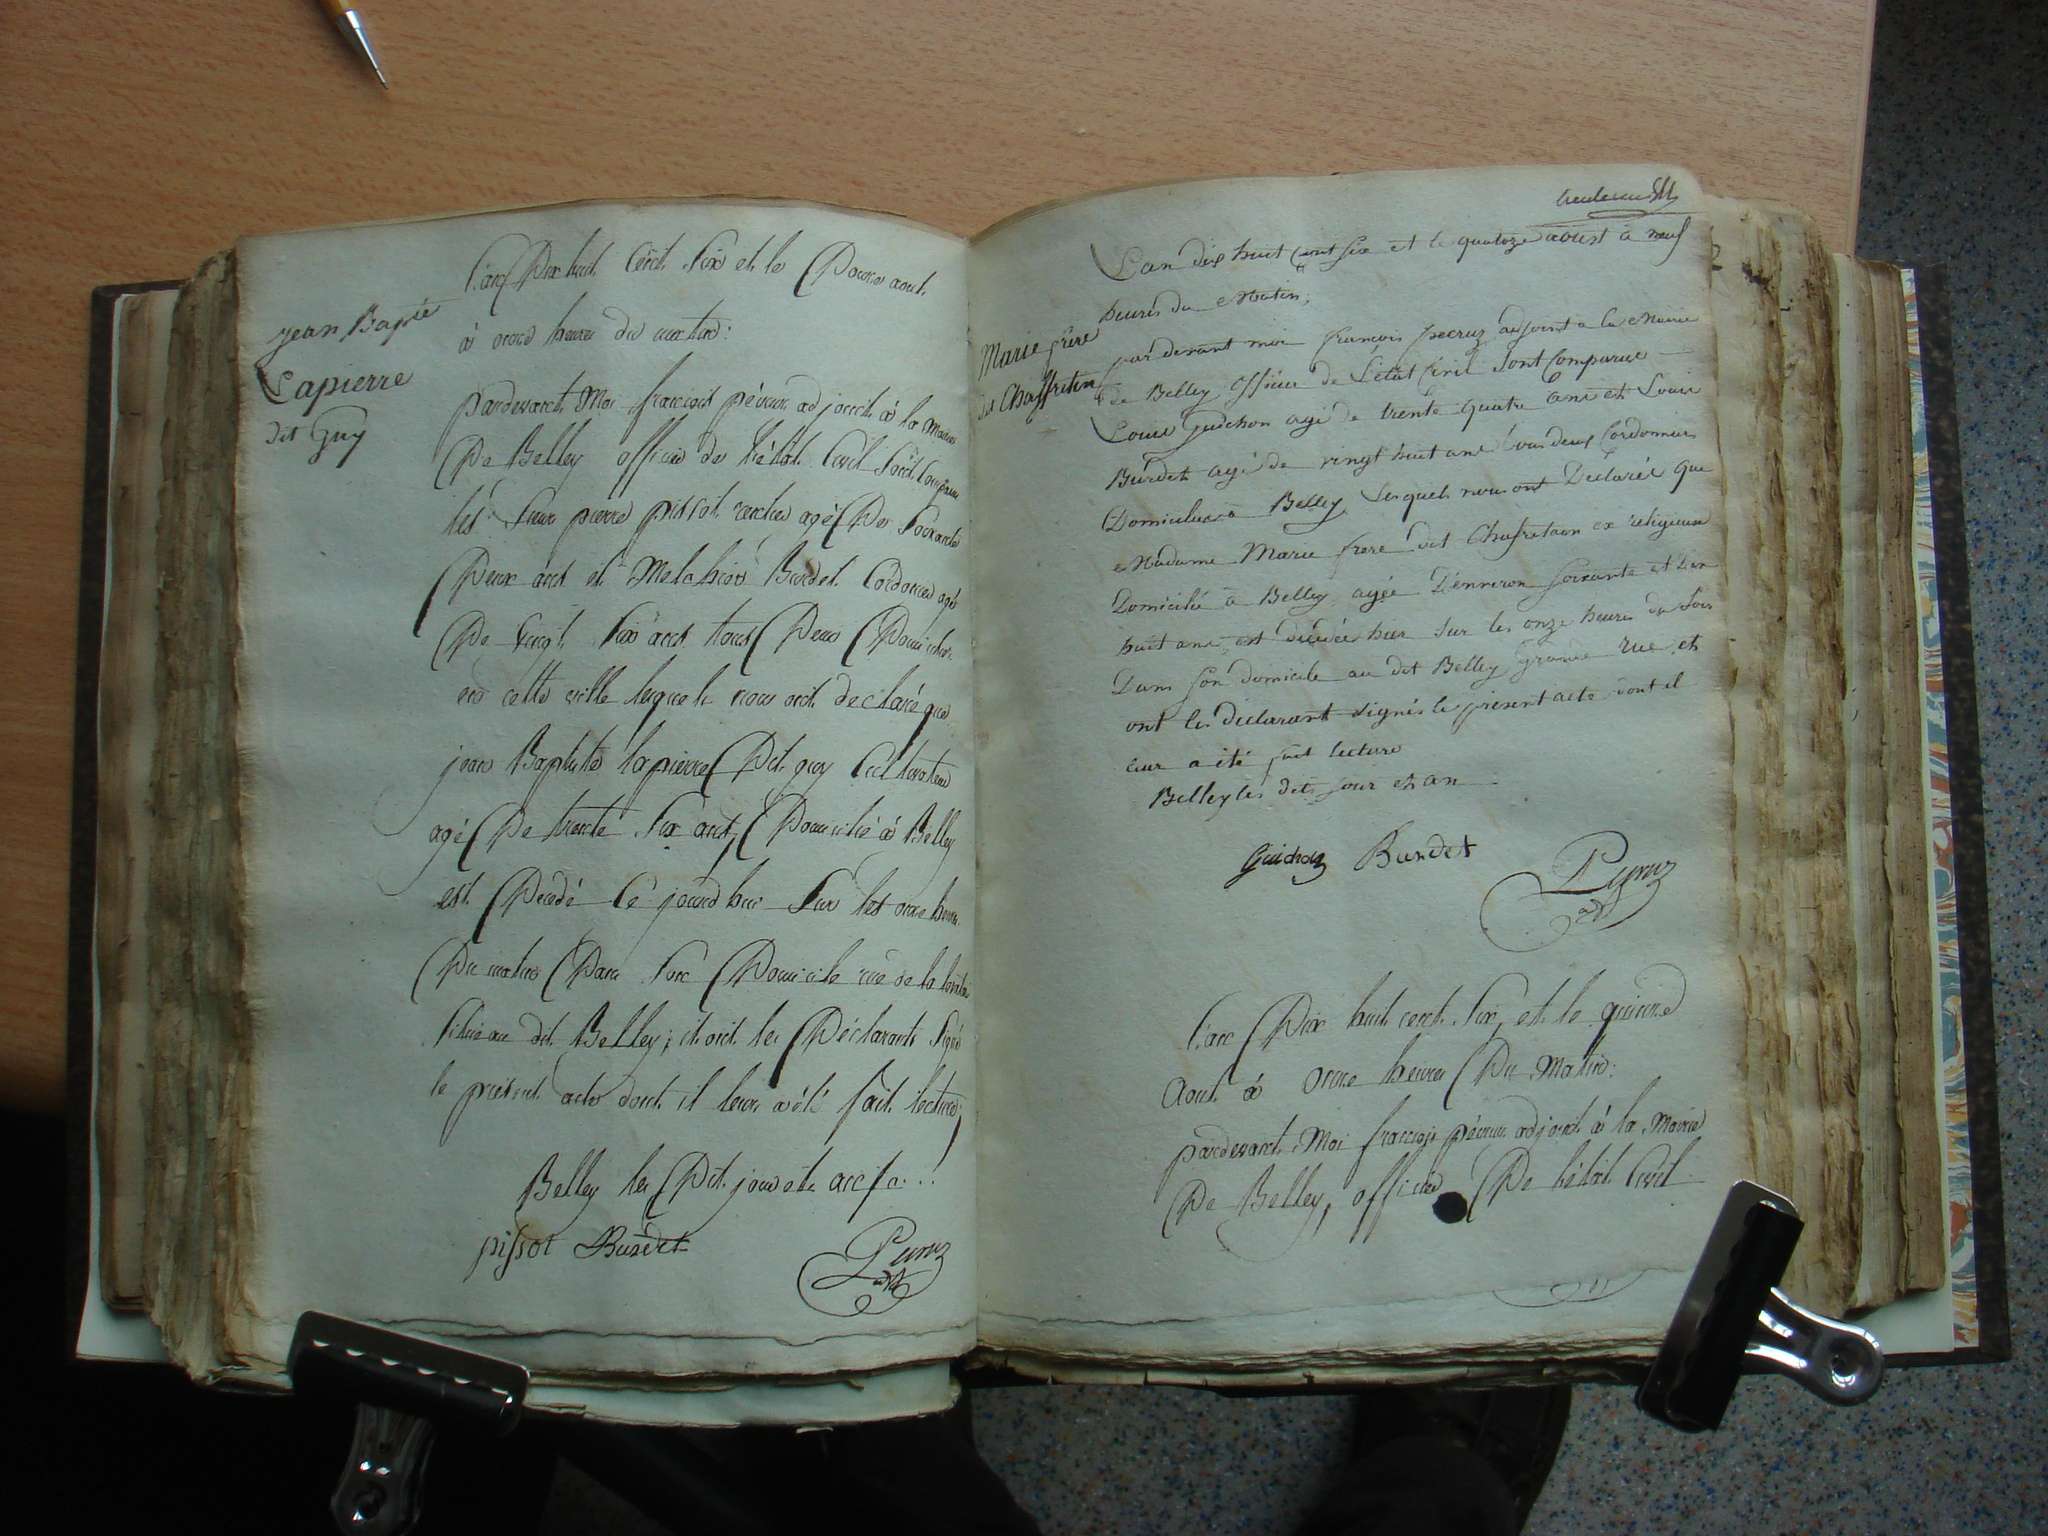 jean Baptte
Lapierre
dit Guy
L'an Dix huit Cent Six et le Douze aout
à onze heures du matin:
pardevant Moi françois péruz adjoint à la Mairie
De Belley officier de l'état Civil Sont Comparu
les Sieur pierre pissot rentier agé De Soixante
Deux ans et Melchior Burdet Cordonier agé
De vingt Six ans tous Deux Domiciliés
en cette ville lesquels nous ont declaré que
jean Baptiste lapierre Dit guy Cultivateur
agé De trente Six ans, Domicilié à Belley
est Decedé Ce jourd'hui Sur les onze heures
Du matin Dans Son Domicile rue de la
Situé au dit Belley; et ont les Déclarants Signé
le présent acte dont il leur a été fait lecture;
Belley les Dit jour et an
pissot Burdet Peruz
adt
L'an dix huit cent six et le quatorze aoust à neuf
heures du Matin;
Marie frere
dit Chaffretin
par devant moi françois peruz adjoint a la Mairie
de Belley officier de L'état Civil sont Comparue
Louis Guichon agé de trente quatre ans et Louis
Burdet agé de vingt huit ans tous deux Cordonniers
Domiciliés à Belley Lesquels nous ont Déclarés que
Madame Marie frere dit Chafretaon ex religieuse
Domicilié à Belley agée D'environ soixante et Dix
huit ans, est décédée hier sur les onze heures du soir
Dans son domicile au dit Belley grande rue, et
ont les déclarant signés le présent acte dont il
leur a été fait lecture
Belley les dits jour et an
Guichon Burdet Peruz
adt
L'an Dix huit cent Six, et le quinze
Aout à onze heures Du Matin:
pardevant Moi françois péruz adjoint à la Mairie
De Belley, officier De l'état Civil